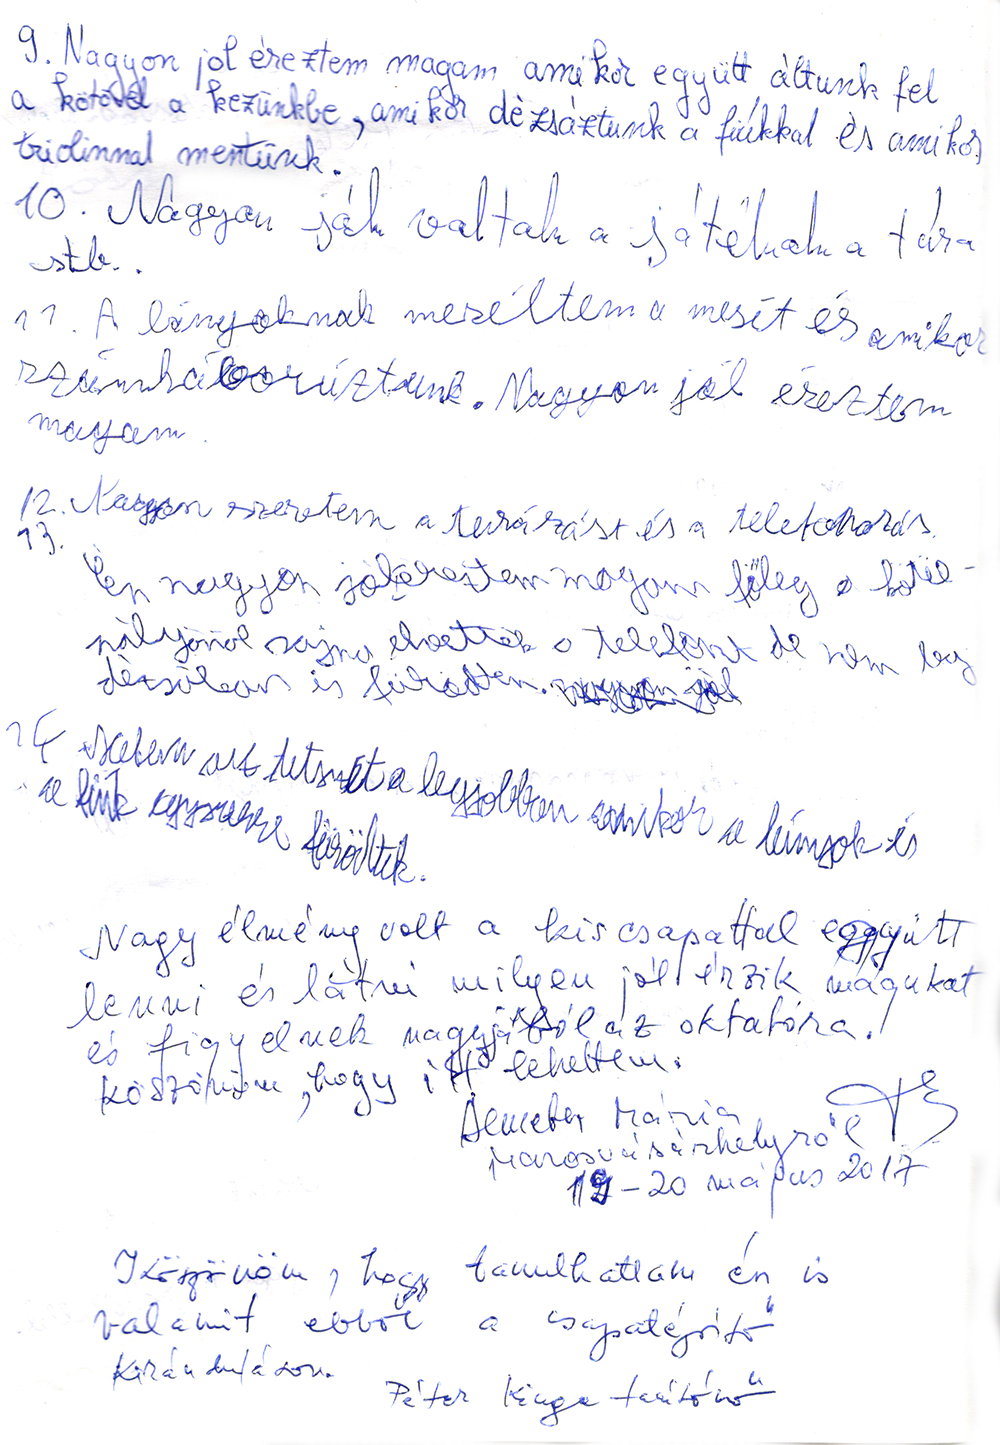 9. Nagyon jól éreztem magam amikor együtt áltunk fel
a kötővel a kezünkbe, amikor dézsáztunk a fiúkkal és amikor
triolinnal mentünk.
10. Nagyon jók valtak a játékok a túra
stb..
11. A lányoknak meséltem a mesét és amikor
rúztunk. Nagyon jól éreztem
magam.
12. Nagyon szeretem a túrázást és a
13.
Én nagyon jól éreztem magam főleg a kötél-
pályánál sajna elvették a telefont de nem baj
is fürödtem. nagyon jól
14 nekem az tetszett a legjobban amikor a lányok és
a fiúk egyszerre fürödtek.
Nagy élmény volt a kis csapattal eggyütt
lenni és látni milyen jól érzik magukat
és figyelnek nagyjából az oktatóra!
Köszönöm, hogy itt lehettem.
Demeter Mária
Marosvásárhelyről
19-20 május 2017
Köszönöm, hogy tanulhattam én is
valamit ebből a csapatépítő
Kiránduláson.
Péter Kinga tanítónő